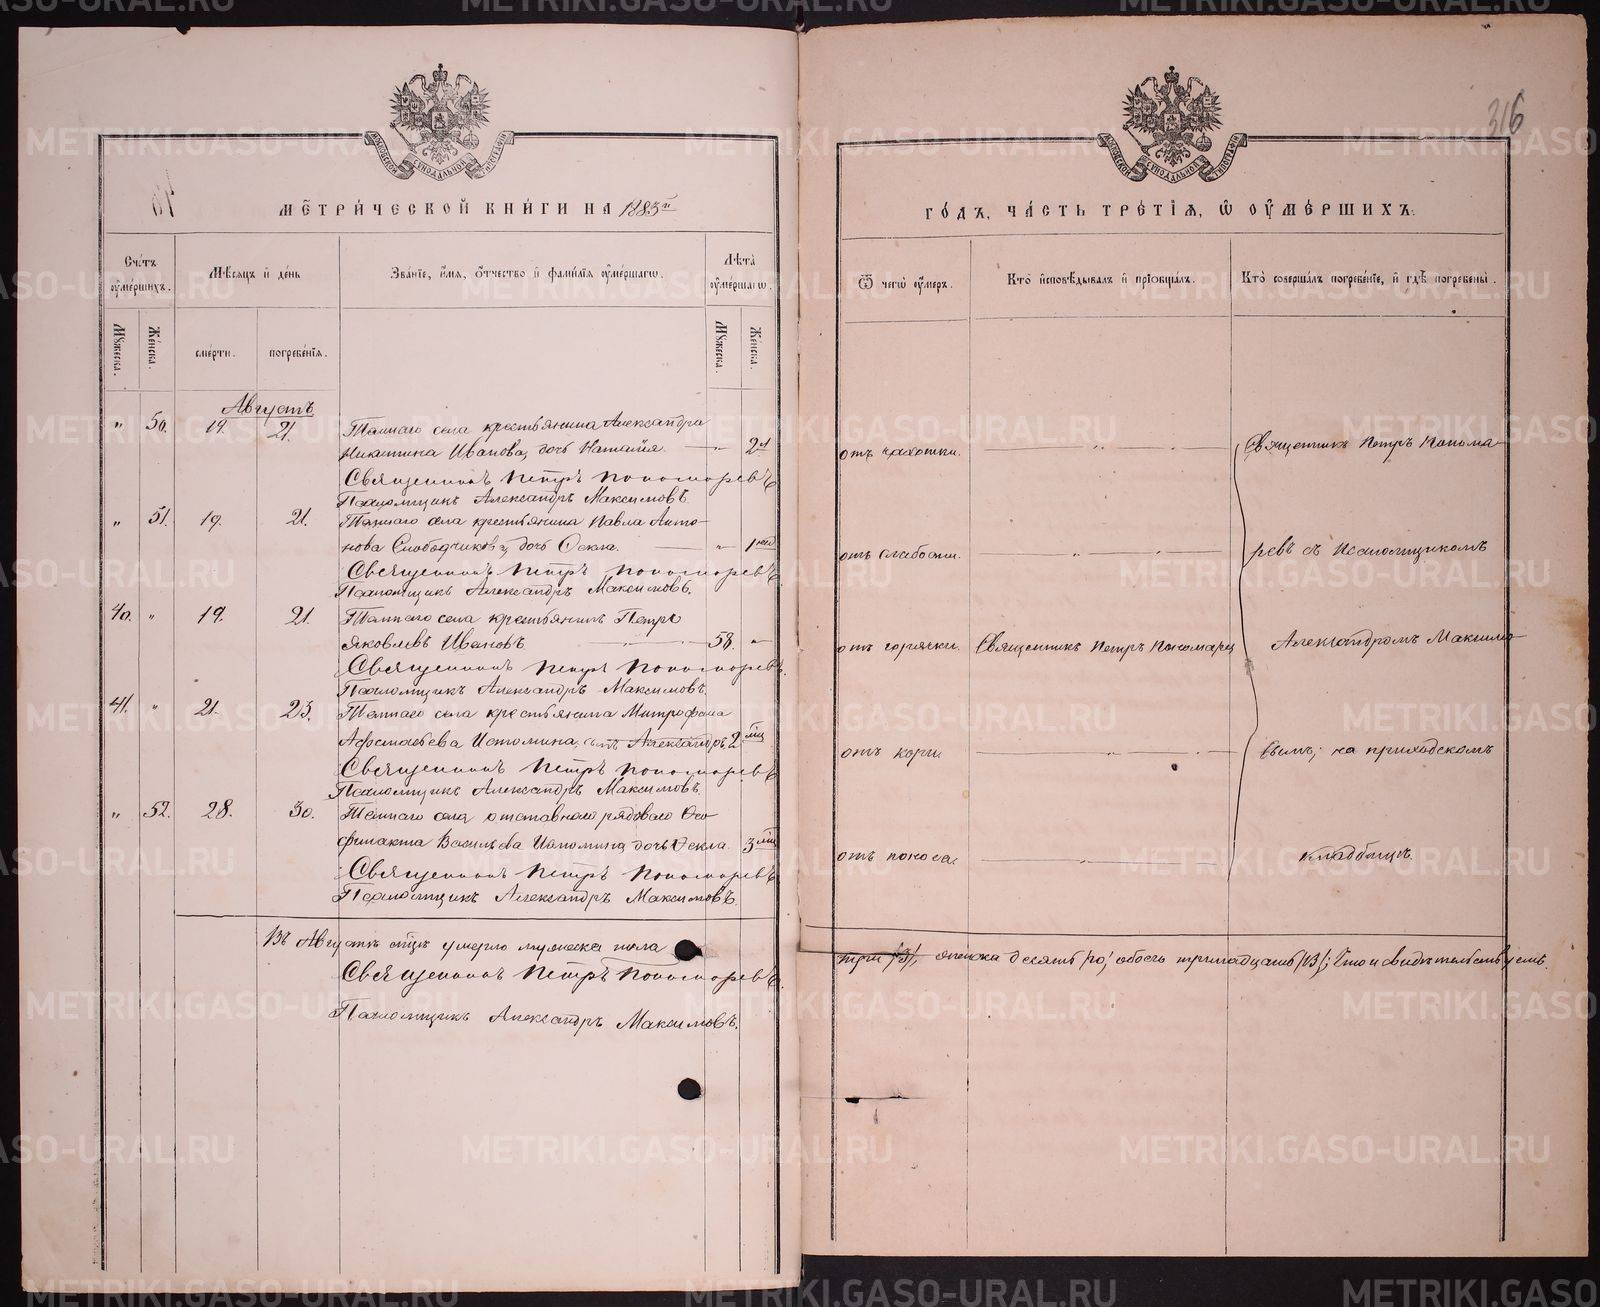 316
МОСКОВСКОЙ СѴНОДАЛЬНОЙ ТИПОГРАФІИ
МОСКОВСКОЙ СѴНОДАЛЬНОЙ ТИПОГРАФІИ
МЕТРИЧЕСКОЙ КНИГИ НА 1885й
ГОДЪ, ЧАСТЬ ТРЕТІЯ, Ѿ ОУМЕРШИХЪ.
Счетъ оумершихъ.
Мѣсяцъ и день
Званіе, имя, отчество и фамилія оумершаго.
Лѣта оумершаго.
Ѿ чего оумеръ.
Кто исповѣдывалъ и пріобщалъ.
Кто совершалъ погребеніе, и гдѣ погребены.
Мужеска.
Женска.
смерти.
погребенія.
Мужеска.
Женска.
Августъ
" 50. 19. 21. Тамгаго села крестьянина Александра
Никитина Иванова, дочь Наталія. — " — 2
отъ чахотки.
Священникъ Петръ Понома-
Священникъ Петръ Пономаревъ
Псаломщикъ Александръ Максимовъ.
" 51. 19. 21. села крестьянина Павла Анто-
нова Слободчикова, дочь Ѳекла. — " — 1 нед
отъ слабости.
ревъ съ Псаломщикомъ
Священникъ Петръ Пономаревъ
Псаломщикъ Александръ Максимовъ.
40. " 19. 21. села крестьянинъ Петръ
Яковлевъ Ивановъ. 58. "
отъ горячки. Священникъ Петръ Пономарев
Александромъ Максимо-
Священникъ Петръ Пономаревъ.
Псаломщикъ Александръ Максимовъ.
41. " 21. 23. села крестьянина Митрофана
Истомина, сынъ Александръ. 2 мц
отъ кори.
вымъ; на приходскомъ
Священникъ Петръ Пономаревъ
Псаломщикъ Александръ Максимовъ.
" 52. 28. 30. села отставного рядового Ѳео-
филакта Васильева Истомина дочь Ѳекла. 3 мц
отъ поноса.
кладбищѣ.
Священникъ Петръ Пономаревъ
Псаломщикъ Александръ Максимовъ.
Въ Августѣ м̃цѣ умерло мужеска пола три /3/, женска десять /10/, обоего тринадцать /13/; Что и свидѣтельствуемъ.
Священникъ Петръ Пономаревъ.
Псаломщикъ Александръ Максимовъ.
METRIKI.GASO-URAL.RU